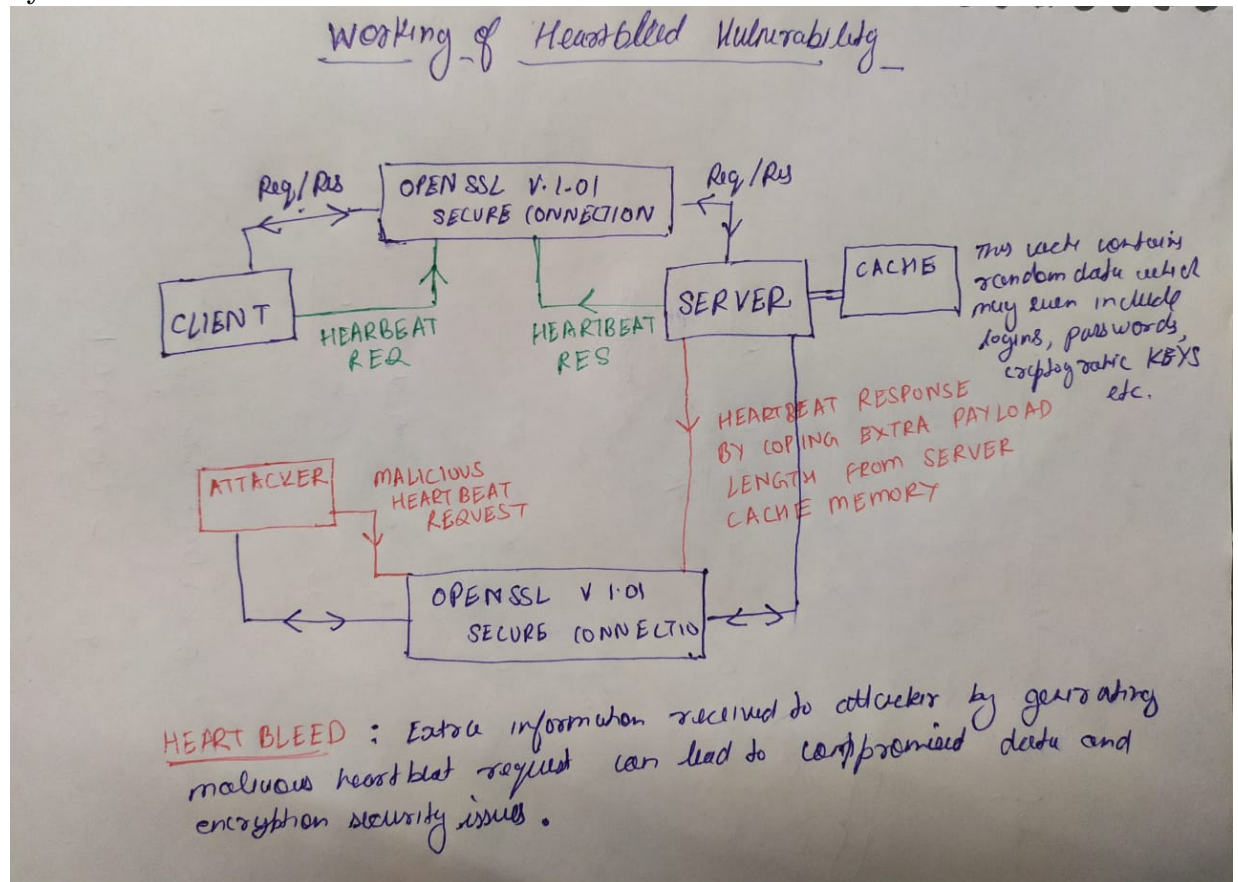 Working of Heartbleed Vulnerability
Req/Res
OPEN SSL V.1.01
SECURE CONNECTION
Req/Res
CLIENT
HEARBEAT
REQ
HEARTBEAT
RES
SERVER
CACHE
This cache contains
random data which
may even include
logins, passwords,
cryptograhic KEYS
etc.
ATTACKER
MALICIOUS
HEARTBEAT
REQUEST
HEARTBEAT RESPONSE
BY COPING EXTRA PAYLOAD
LENGTH FROM SERVER
CACHE MEMORY
OPENSSL V 1.01
SECURE CONNECTIO
HEART BLEED : Extra information received to attacker by generating
malicious heartbeat request can lead to compromised data and
encryption security issues.